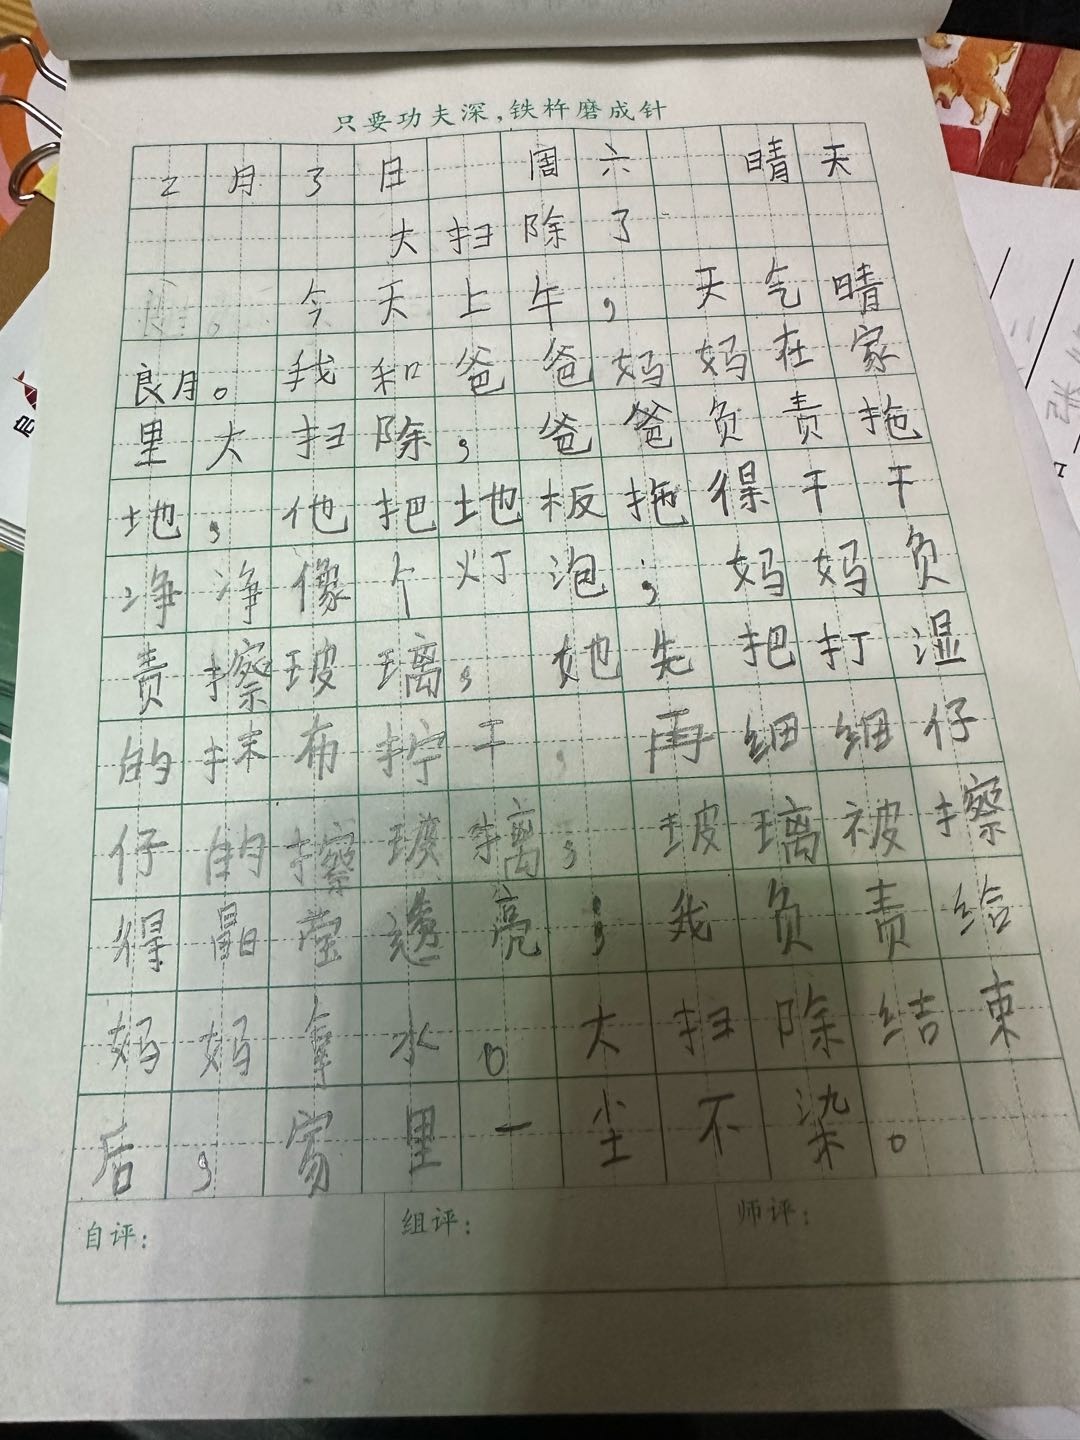 只要功夫深，铁杵磨成针
2月3日 周六 晴天
大扫除了
今天上午，天气晴
朗。我和爸爸妈妈在家
里大扫除，爸爸负责拖
地，他把地板拖得干干
净净像个灯泡；妈妈负
责擦玻璃，她先把打湿
的抹布拧干，再细细仔
仔的擦玻璃，玻璃被擦
得晶莹透亮；我负责给
妈妈拿水。大扫除结束
后，家里一尘不染。
自评： 组评： 师评：